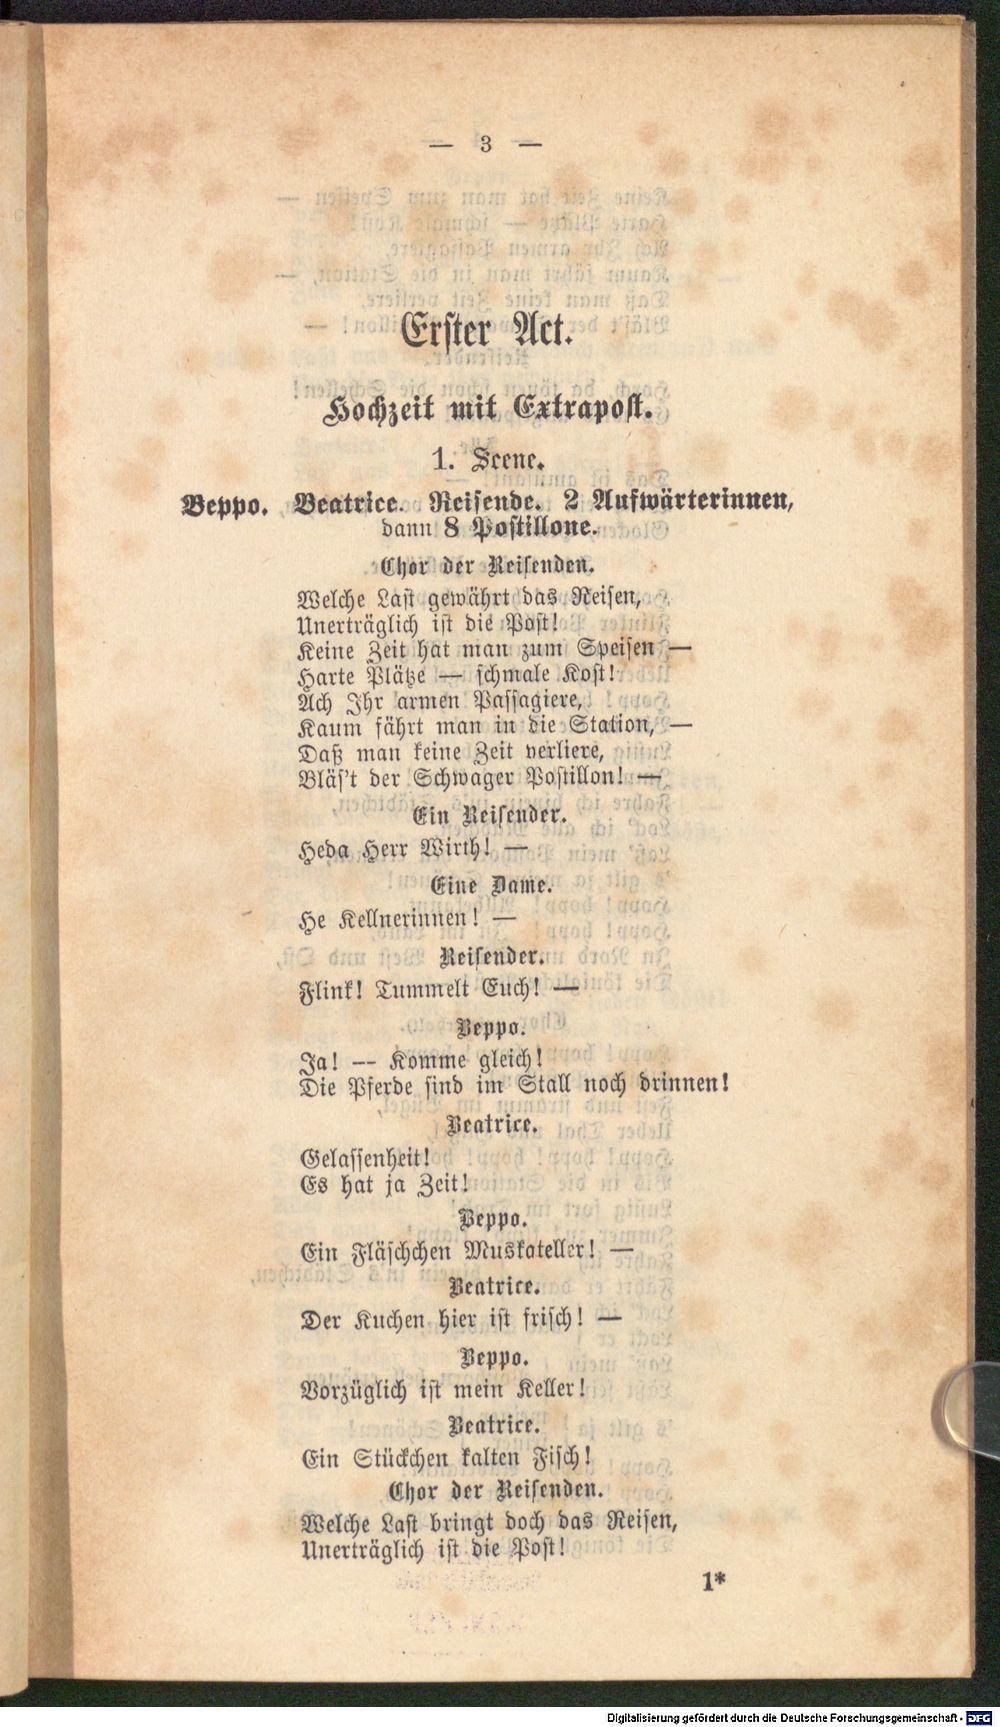 — 3 —
Erster Act.
Hochzeit mit Extrapost.
1. Scene.
Beppo. Beatrice. Reisende. 2 Aufwärterinnen,
dann 8 Postillone.
Chor der Reisenden.
Welche Last gewährt das Reisen,
Unerträglich ist die Post!
Keine Zeit hat man zum Speisen —
Harte Plätze — schmale Kost!
Ach Ihr armen Passagiere,
Kaum fährt man in die Station, —
Daß man keine Zeit verliere,
Bläs't der Schwager Postillon! —
Ein Reisender.
Heda Herr Wirth! —
Eine Dame.
He Kellnerinnen! —
Reisender.
Flink! Tummelt Euch! —
Beppo.
Ja! — Komme gleich!
Die Pferde sind im Stall noch drinnen!
Beatrice.
Gelassenheit!
Es hat ja Zeit!
Beppo.
Ein Fläschchen Muskateller! —
Beatrice.
Der Kuchen hier ist frisch! —
Beppo.
Vorzüglich ist mein Keller!
Beatrice.
Ein Stückchen kalten Fisch!
Chor der Reisenden.
Welche Last bringt doch das Reisen,
Unerträglich ist die Post!
1*
Digitalisierung gefördert durch die Deutsche Forschungsgemeinschaft - DFG